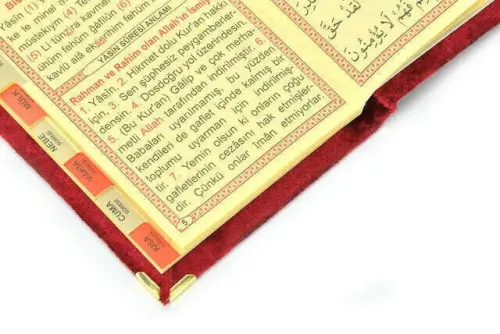 Yâsîn (1)
as le minel m
müstekıym (
(6) Li tünzira kavmen
ühüm fehüm gâfilûn
kavlü alâ ekserihim fehüm
YASİN SÛRESİ ANLAMI
Rahman ve Rahim olan Allah'ın İsmiy
1. Yâsîn. 2. Hikmet dolu Kur'an hakkı
için, 3. Sen şüphesiz peygamberler
densin. 4. Dosdoğru yol üzerindesin.
5. (Bu Kur'an) Galip ve çok merha
metli Allah tarafından indirilmiştir. 6.
Babaları uyarılmamış, bu yüzden
kendileri de gaflet içinde kalmış bir
toplumu uyarman için indirilmiş-
tir. 7. Yemin olsun ki onların çoğu
gafletlerinin cezasını hak etmişler-
dir. Çünkü onlar îmân etmiyorlar.
5
MÜLK
NEBE
SÛRESİ
VAKIA
CUMA
SÛRESİ
KISA
فَهُمْ لَا يُؤْمِنُونَ